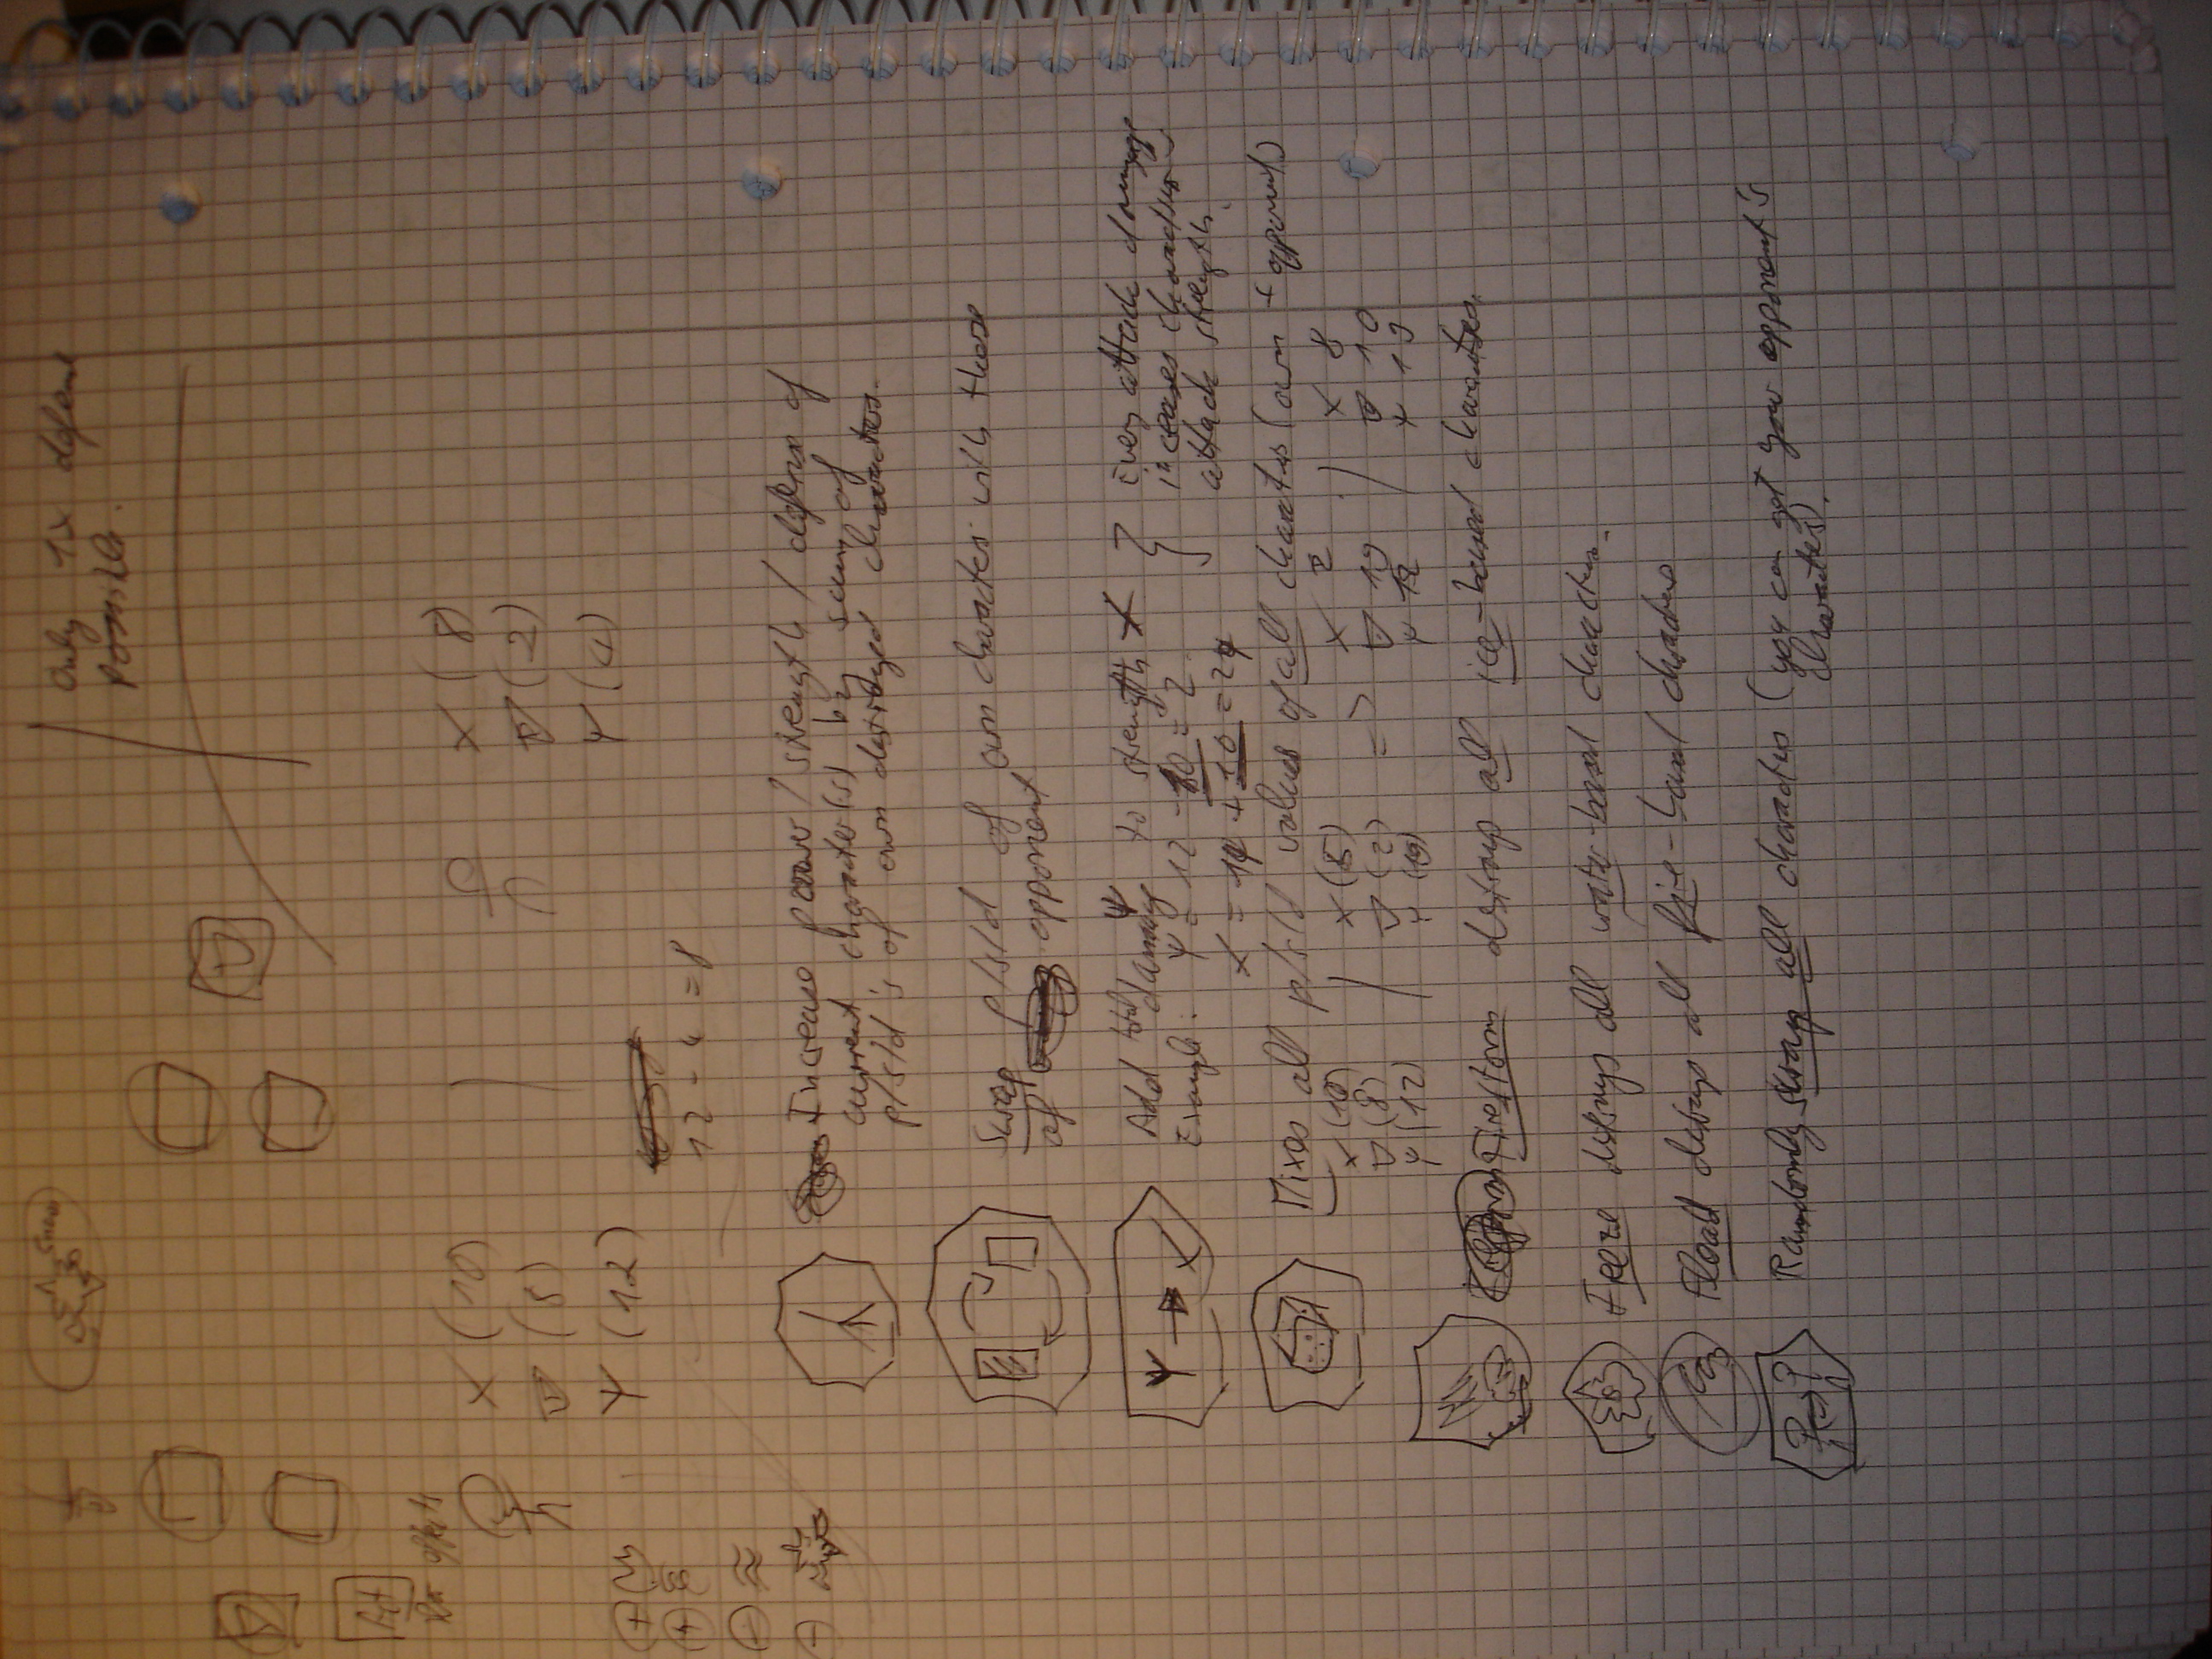 only 1x defend
possible.
X (10)
X (8)
(5)
(2)
Ψ (12)
Ψ (4)
12 - 4 = 8
Increase power / strength / defens of
current character(s) by sum of
p/s/d's of own destroyed charactes.
Swap p/s/d of own charactes with those
of opponent
Add Ψ damage to strength X } Every attack damage
Example: Ψ = 12 - 10 = 2
increases character's
X = 14 + 10 = 24
attack strength.
Mixes all p/s/d values of all charactes (own + opponent)
X (10) / X (5) => X 2 / X 8
▽ (8) ▽ (2) ▽ 19 ▽ 10
Ψ (12) Ψ (19) Ψ 12 Ψ 19
Firestorm destroys all ice-based charactes.
Freeze destroys all water-based characters.
Flood destroys all fire-based characters
Randomly swap all charactes (you can get your opponent's
charactes).